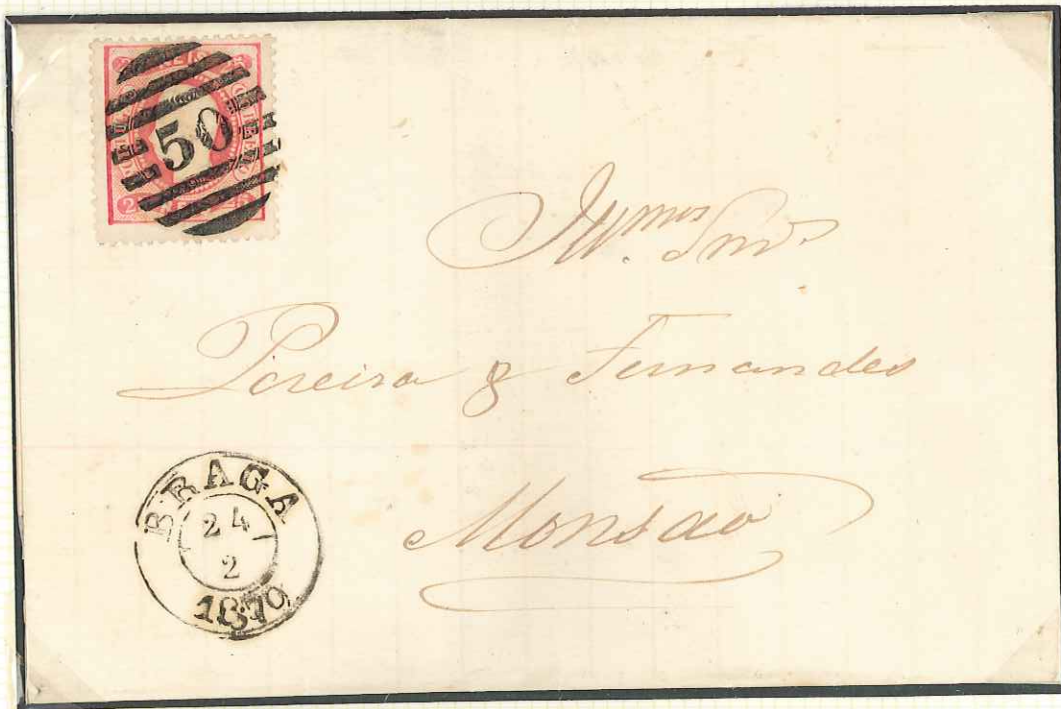 REIS
50
Ill.mos Snrs
Pereira & Fernandes
Monsão
BRAGA
24
2
1870